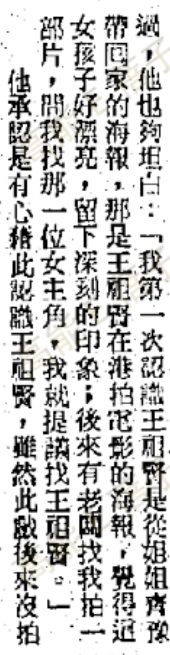 過，他也夠坦白：「我第一次認識王祖賢是從姐姐齊豫
帶回家的海報，那是王祖賢在港拍電影的海報，覺得這
女孩子好漂亮，留下深刻的印象；後來有老闆找我拍一
部片，問我找那一位女主角，我就提議找王祖賢。」
他承認是有心藉此認識王祖賢，雖然此戲後來沒拍